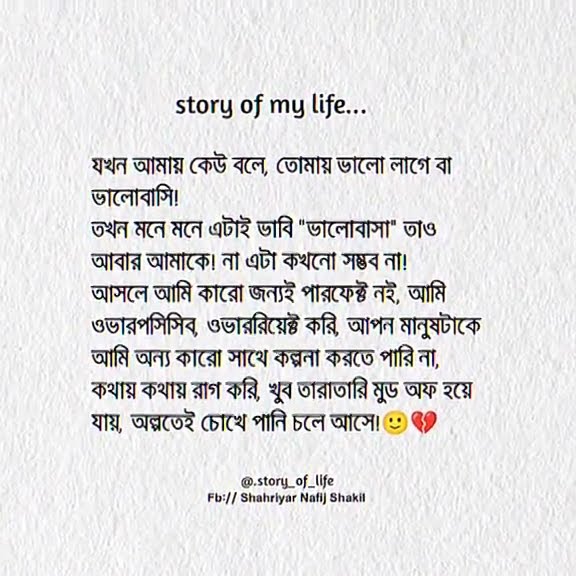 story of my life...
যখন আমায় কেউ বলে, তোমায় ভালো লাগে বা
ভালোবাসি!
তখন মনে মনে এটাই ভাবি "ভালোবাসা" তাও
আবার আমাকে! না এটা কখনো সম্ভব না!
আসলে আমি কারো জন্যই পারফেক্ট নই, আমি
ওভারপসিসিব, ওভাররিয়েক্ট করি, আপন মানুষটাকে
আমি অন্য কারো সাথে কল্পনা করতে পারি না,
কথায় কথায় রাগ করি, খুব তারাতারি মুড অফ হয়ে
যায়, অল্পতেই চোখে পানি চলে আসে!🙂💔
@.story_of_life
Fb:// Shahriyar Nafij Shakil